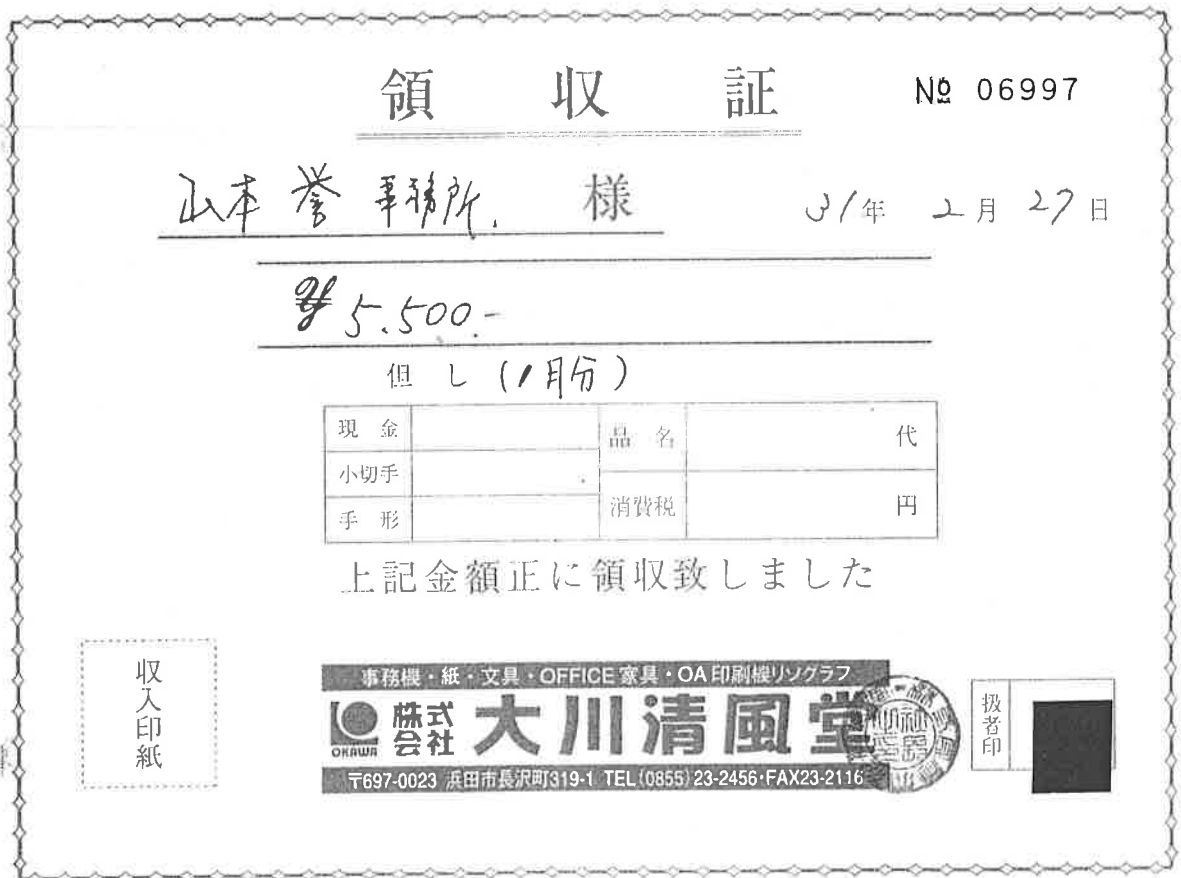 領収証
№ 06997
山本 誉 事務所. 様
31年 2月 27日
¥5.500.-
但し (1月分)
現金
品名 代
小切手
消費税 円
手形
上記金額正に領収致しました
収入印紙
事務機・紙・文具・OFFICE家具・OA印刷機リソグラフ
OKAWA
株式会社 大川清風堂
〒697-0023 浜田市長沢町319-1 TEL(0855)23-2456・FAX23-2116
扱者印